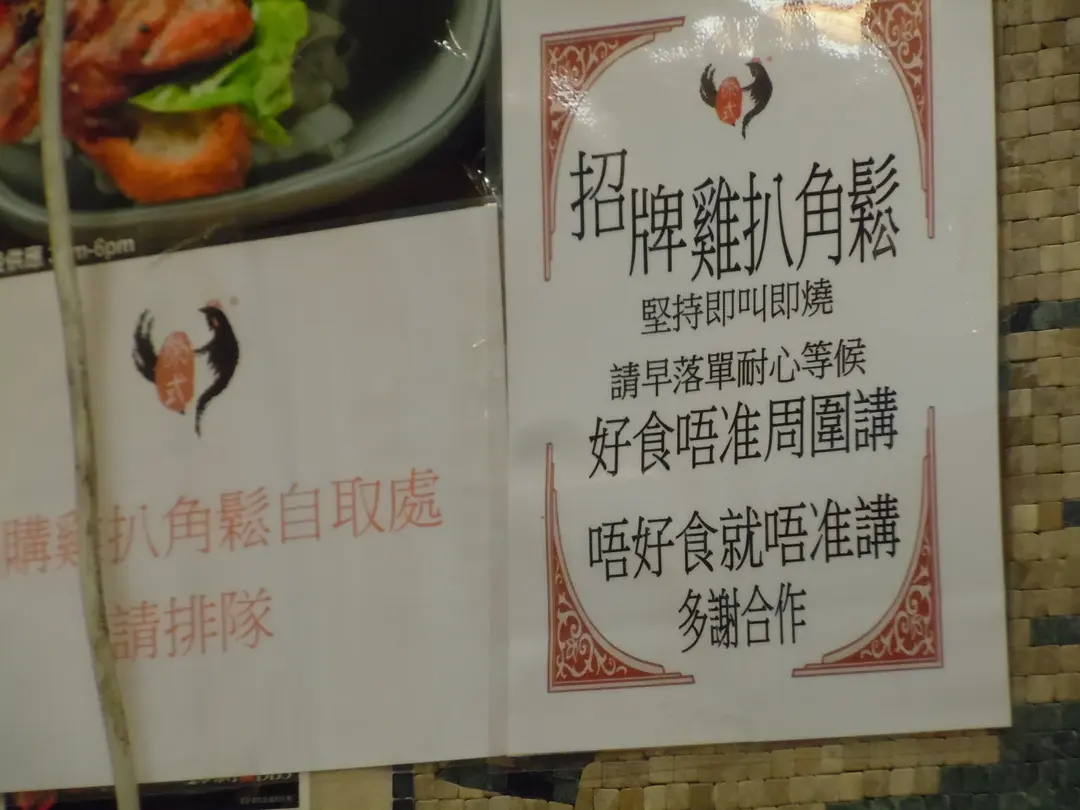 供應
m-6pm
式
購雞扒角鬆自取處
請排隊
式
招牌雞扒角鬆
堅持即叫即燒
請早落單耐心等候
好食唔准周圍講
唔好食就唔准講
多謝合作